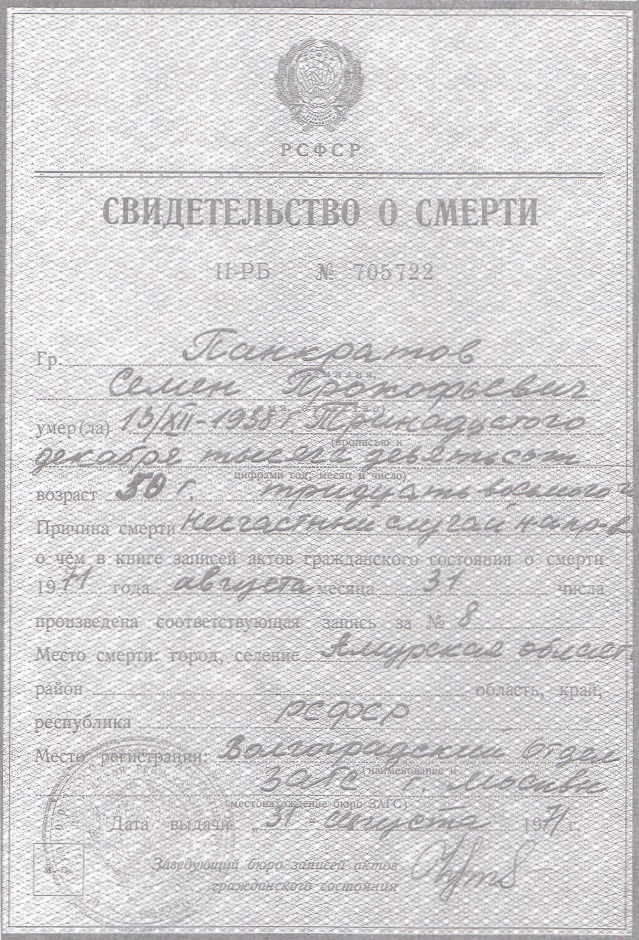 РСФСР
СВИДЕТЕЛЬСТВО О СМЕРТИ
II-РБ № 705722
Гр. Панкратов
Семен Прокофьевич
умер(ла) 13/XII-1938 г Тринадцатого
(прописью и
декабря тысяча девятьсот
цифрами год, месяц и число)
возраст 50 г. тридцать восьмого г
Причина смерти Несчастный случай
о чём в книге записей актов гражданского состояния о смерти
1971 года августа месяца 31 числа
произведена соответствующая запись за № 8
Место смерти: город, селение Амурская област
район область, край,
республика РСФСР
Место регистрации: Волгоградский отдел
(наименование и
ЗАГС г. Москвы
местонахождение бюро ЗАГС)
Дата выдачи „31" августа 1971 г.
М. П.
Заведующий бюро записей актов
гражданского состояния